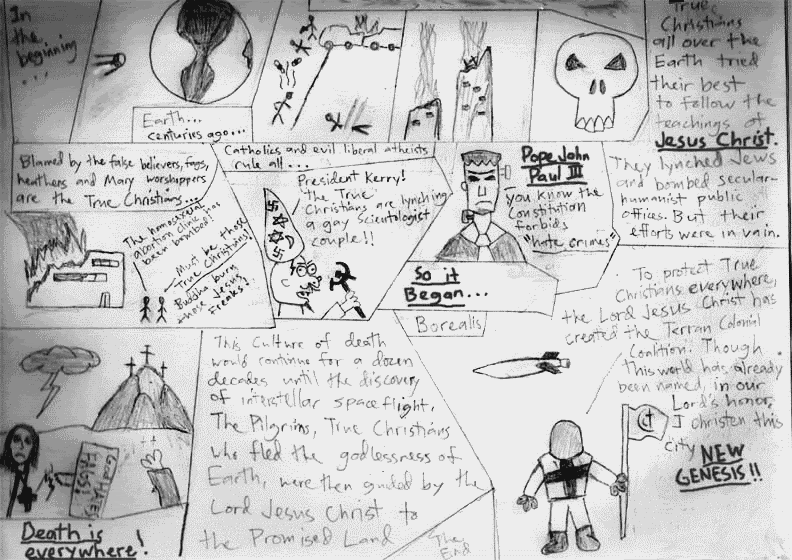 In
the
beginning
...
Earth...
centuries ago...
True
Christians
all over the
Earth tried
their best
to follow the
teachings of
Jesus Christ.
They lynched Jews
and bombed secular-
humanist public
offices. But their
efforts were in vain.
Blamed by the false believers, fags,
heathens and Mary worshippers
are the True Christians...
The homosexual
abortion clinic has
been bombed!
Must be those
True Christians!
Buddha burn
those Jesus
freaks!
Catholics and evil liberal atheists
rule all...
President Kerry!
"The True"
Christians are lynching
a gay Scientologist
couple!!
Pope John
Paul III
you know the
Constitution
forbids
"hate crimes"
So it
Began...
Borealis
To protect True
Christians everywhere,
the Lord Jesus Christ has
created the Terran Colonial
Coalition. Though
this world has already
been named, in our
Lord's honor,
I christen this
city NEW
GENESIS!!
GOD HATES
FAGS!
Death is
everywhere!
This Culture of death
would continue for a dozen
decades until the discovery
of interstellar spaceflight.
The Pilgrims, True Christians
who fled the godlessness of
Earth, were then guided by the
Lord Jesus Christ to
the Promised Land
The
End